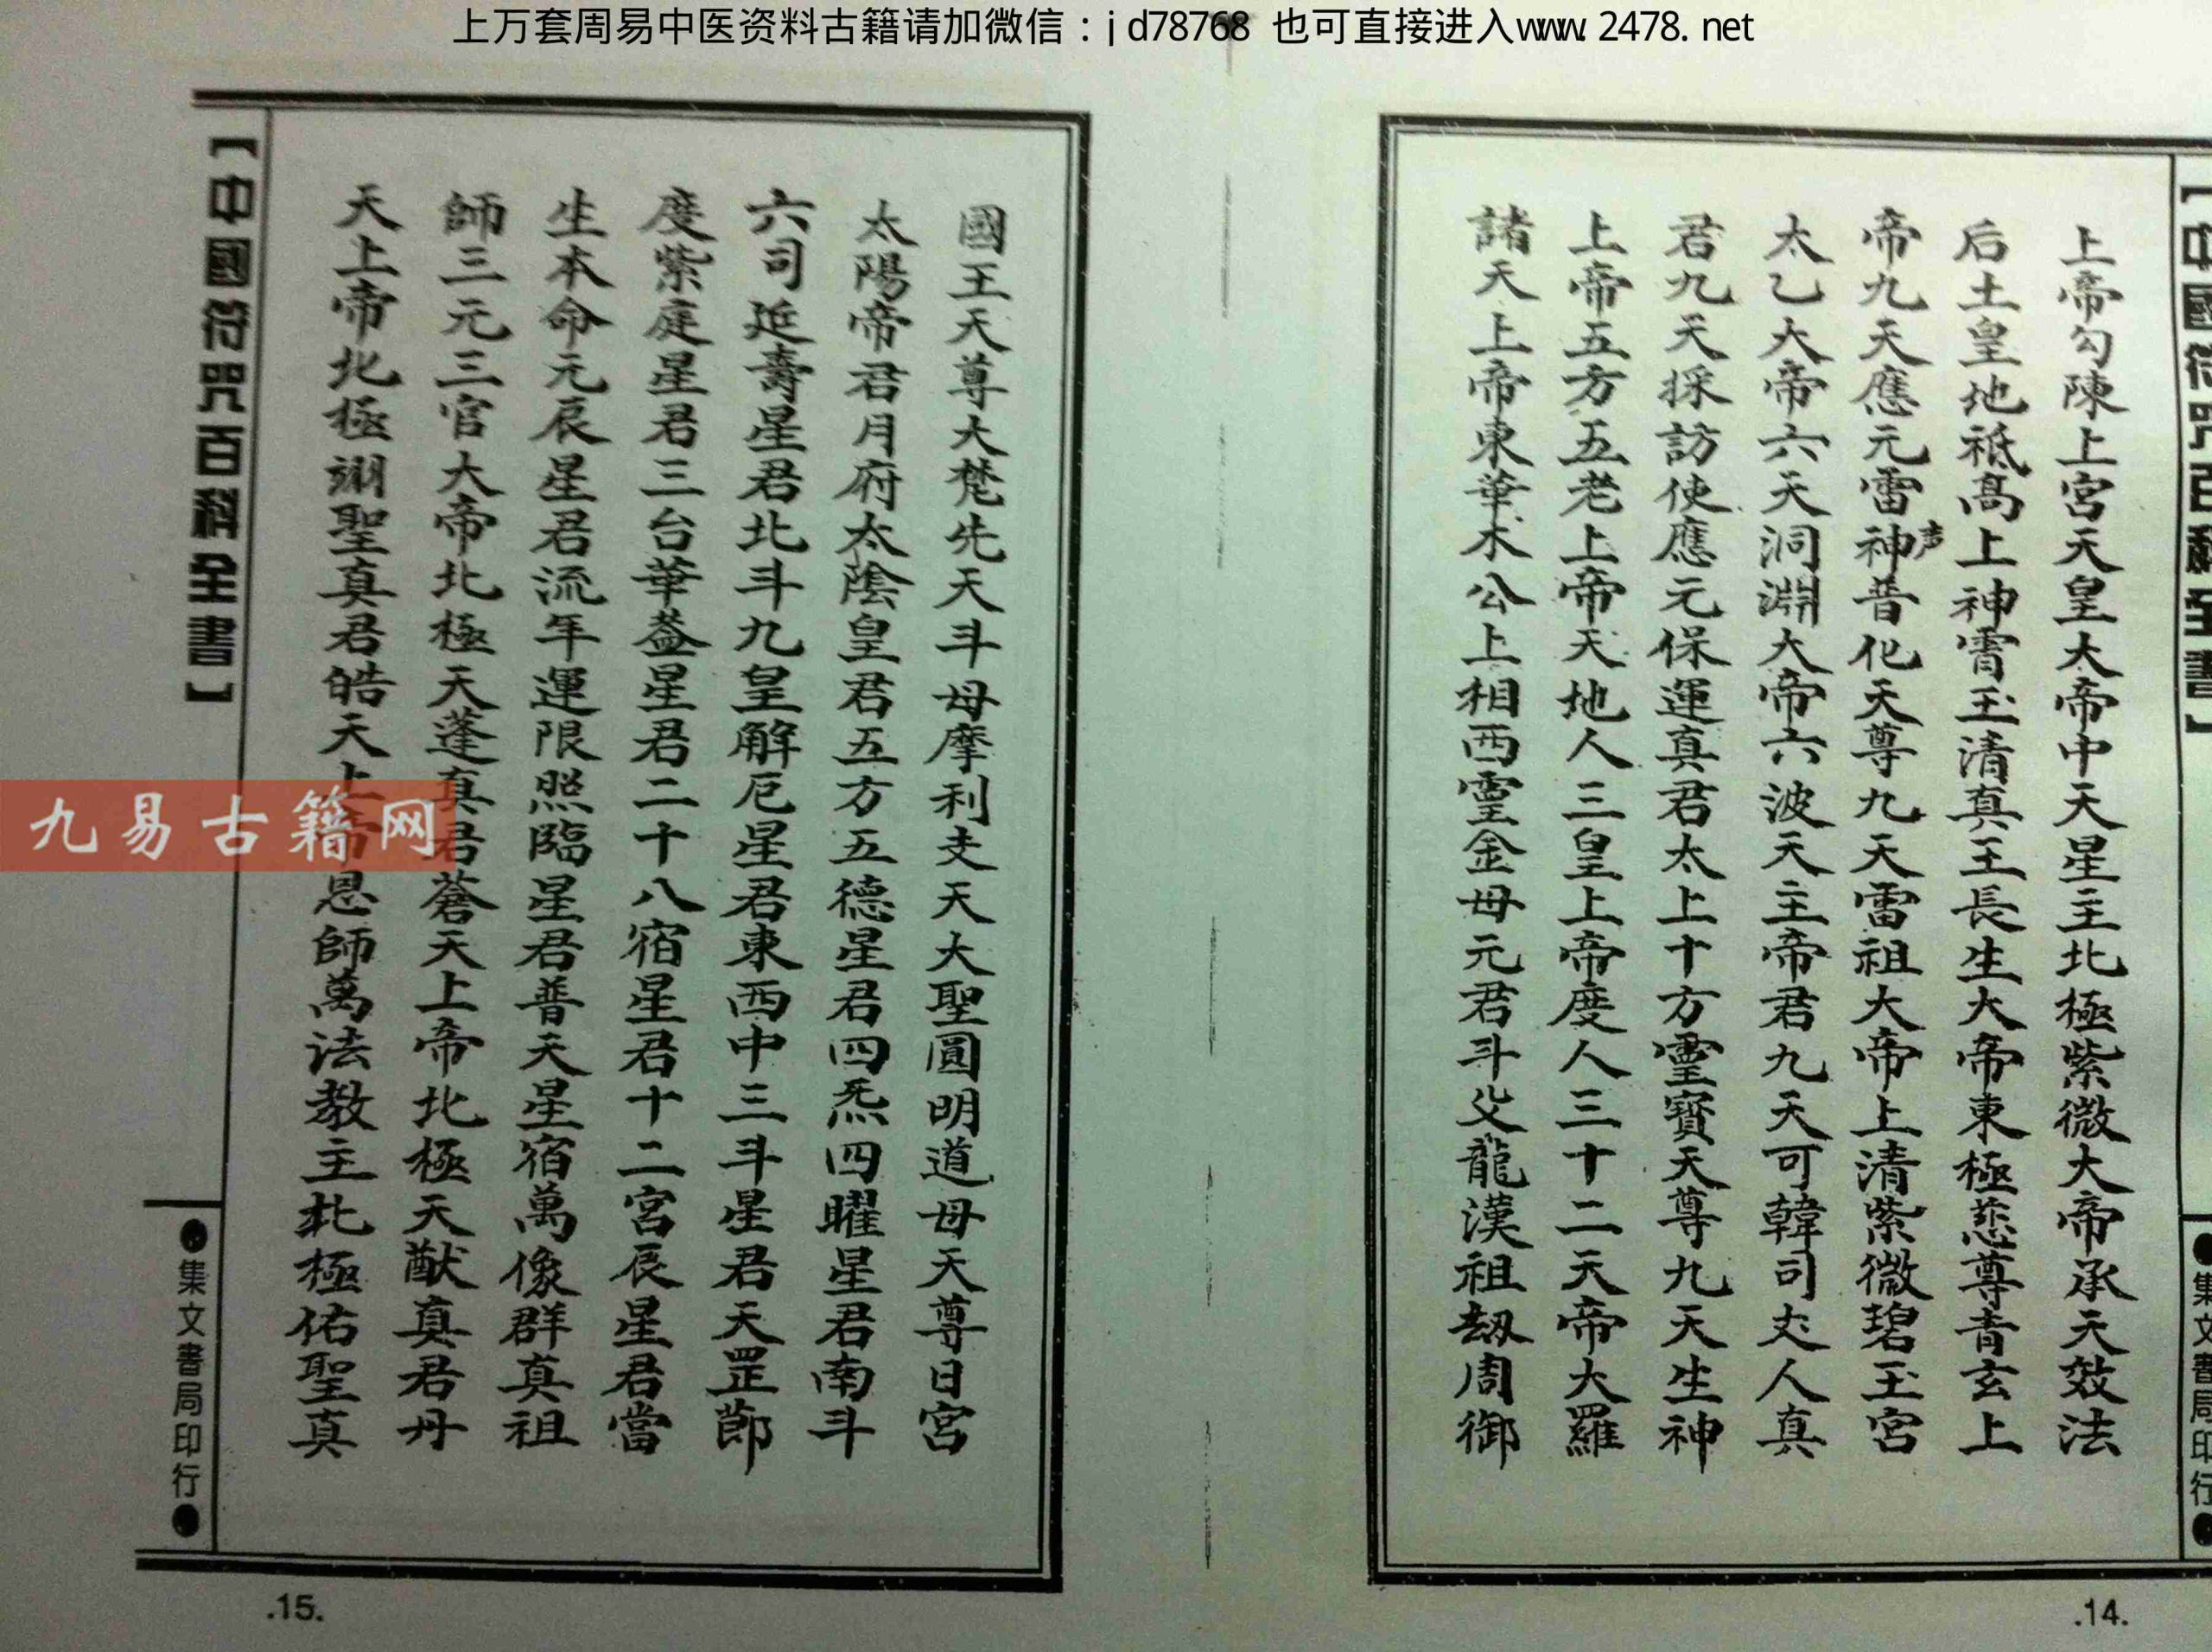 上万套周易中医资料古籍请加微信：jd78768 也可直接进入www.2478.net
上帝勾陳上宮天皇大帝中天星主北極紫微大帝承天效法
后土皇地祗高上神霄玉清真王長生大帝東極慈尊青玄上
帝九天應元雷神普化天尊九天雷祖大帝上清紫微碧玉宮
声
太乙大帝六天洞淵大帝六波天主帝君九天可韓司丈人真
君九天採訪使應元保運真君太上十方靈寶天尊九天生神
上帝五方五老上帝天地人三皇上帝度人三十二天帝大羅
諸天上帝東華木公上相西靈金母元君斗父龍漢祖劫周御
.14.
國王天尊大梵先天斗母摩利支天大聖圓明道母天尊日宮
太陽帝君月府太陰皇君五方五德星君四炁四曜星君南斗
六司延壽星君北斗九皇解厄星君東西中三斗星君天罡節
度紫庭星君三台華蓋星君二十八宿星君十二宮辰星君當
生本命元辰星君流年運限照臨星君普天星宿萬像群真祖
師三元三官大帝北極天蓬真君蒼天上帝北極天猷真君丹
天上帝北極翊聖真君皓天上帝恩師萬法教主北極佑聖真
【中國符咒百科全書】
●集文書局印行●
.15.
【中國符咒百科全書】
●集文書局印行●
九易古籍网